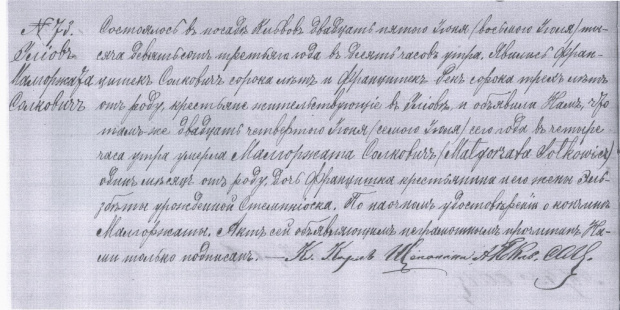 № 73.
Иловъ
Малгоржата
Солковичъ
Состоялось въ посадѣ Кервовъ двадцать пятого Іюня /восьмого Іюля/ ты-
сяча девятьсотъ третьяго года въ десять часовъ утра. Явились Фран-
цишекъ Солковичъ сорока лѣтъ и Францишекъ сорока трехъ лѣтъ
отъ роду, крестьяне жительствующіе въ Иловѣ, и объявили Намъ, что
тамъ-же двадцать четвертого Іюня /седьмого Іюля/ сего года въ четыре
часа утра умерла Малгоржата Солковичъ /Małgorzata Sołkowicz/
одинъ мѣсяцъ отъ роду, дочь Францишка крестьянина и его жены Эль-
збѣты урожденной. По наочномъ удостовѣреніи о кончинѣ
Малгоржаты, Актъ сей объявляющимъ неграмотнымъ прочитанъ, На-
ми только подписанъ. — Кс. Карлъ